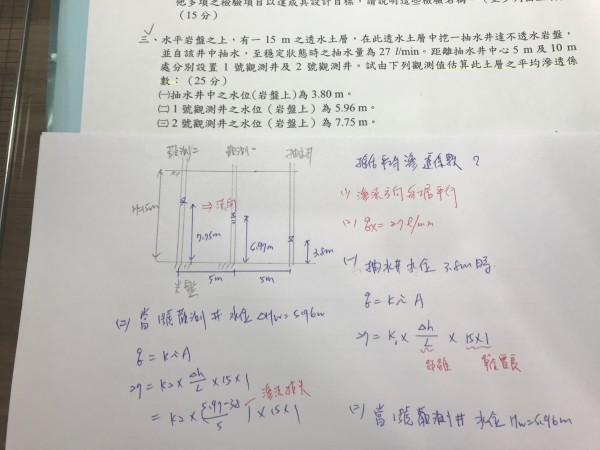 他多項之檢驗項目以達成其設計目標,請說明這些檢驗名稱
(15 分)
三、水平岩盤之上,有一 15 m 之透水土層,在此透水土層中挖一抽水井達不透水岩盤,
並自該井中抽水,至穩定狀態時之抽水量為 27 l/min。距離抽水井中心 5 m 及 10 m
處分別設置 1 號觀測井及 2 號觀測井。試由下列觀測值估算此土層之平均滲透係
數:(25 分)
㈠抽水井中之水位(岩盤上)為 3.80 m。
㈡1 號觀測井之水位(岩盤上)為 5.96 m。
㈢2 號觀測井之水位(岩盤上)為 7.75 m。
觀測二 觀測一 抽水井
H=15m
⇒ 流向
7.75m
5.97m
3.8m
5m 5m
岩盤
推估平均滲透係數?
(1) 滲流方向與岩盤平行
(2) qx = 27 l/min
(一) 抽水井水位 3.8m 時
q = k i A
27 = K1 × Δh/L × 15×1
距離 單位寬長
(二) 當1號觀測井水位 ΔHw=5.96m
q = k i A
27 = K2 × Δh/L × 15 × 1
滲流損失
= K2 × (5.97-3.8)/5 × 15 × 1
(二) 當1號觀測井水位 Hw=5.96m